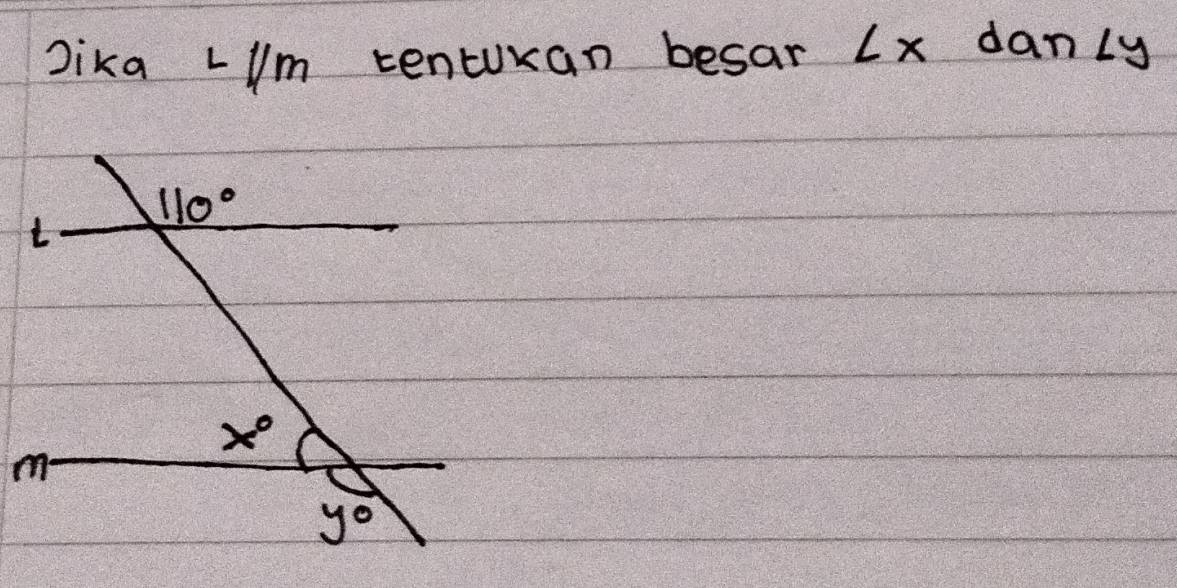 Jika L//m tentukan besar ∠x dan ∠y
110°
L
x°
m
y°